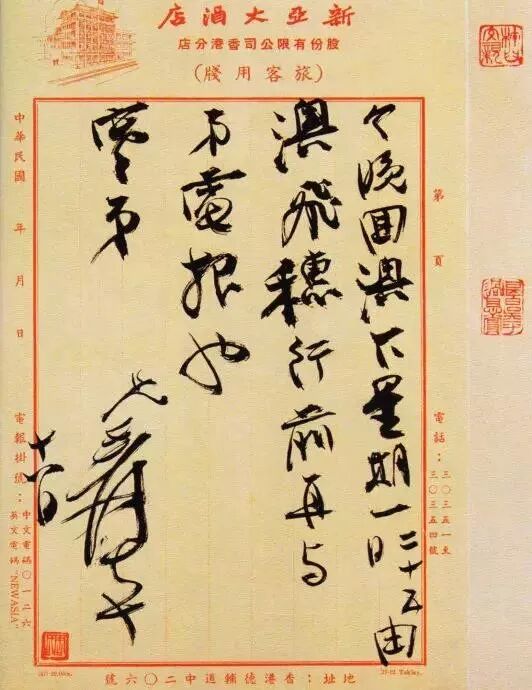 新亞大酒店
股份有限公司香港分店
(旅客用牋)
第 頁
電話:三〇三五一至三〇三五四號
今晚回澳下星期一二十五日由
澳飛穗行前再与
弟電報也
弟
兄爰
中華民國 年 月 日
電報掛號:中文電碼〇一二六
英文電碼"NEW ASIA"
地址:香港德輔道中二〇六號